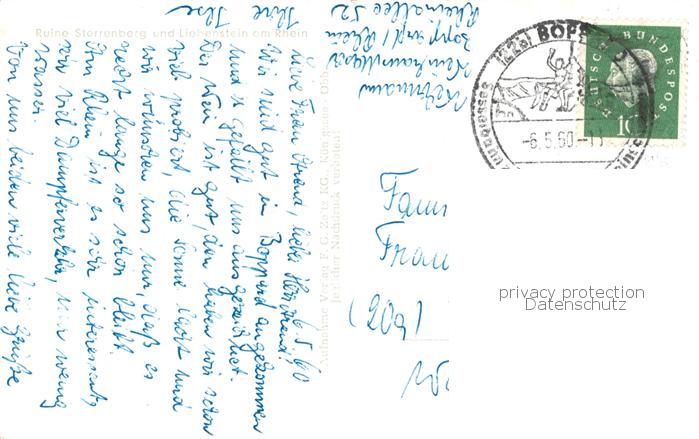 Ruine Sterrenberg und Liebenstein am Rhein
6.5.60
Liebe Frau
Wir sind gut in Boppard angekommen
und es gefällt uns ausgezeichnet.
Der Wein ist gut, den haben wir schon
viel probiert, die Sonne lacht und
wir wünschen uns nur, daß es
recht lange so schön bleibt.
Am Rhein ist es sehr interessant,
sehr viel Dampferverkehr, nur wenig
Wasser.
Von uns beiden viele liebe Grüße
Ihre Ilse
Boppard / Rhein
Rheinallee 52
Aufnahme Verlag F. G. Zeitz KG., Königssee / Obb.
Jeglicher Nachdruck verboten!
(22b) BOPP
-6.5.60-11
DEUTSCHE BUNDESPOST
10
Fami
Frau
(20)
privacy protection
Datenschutz